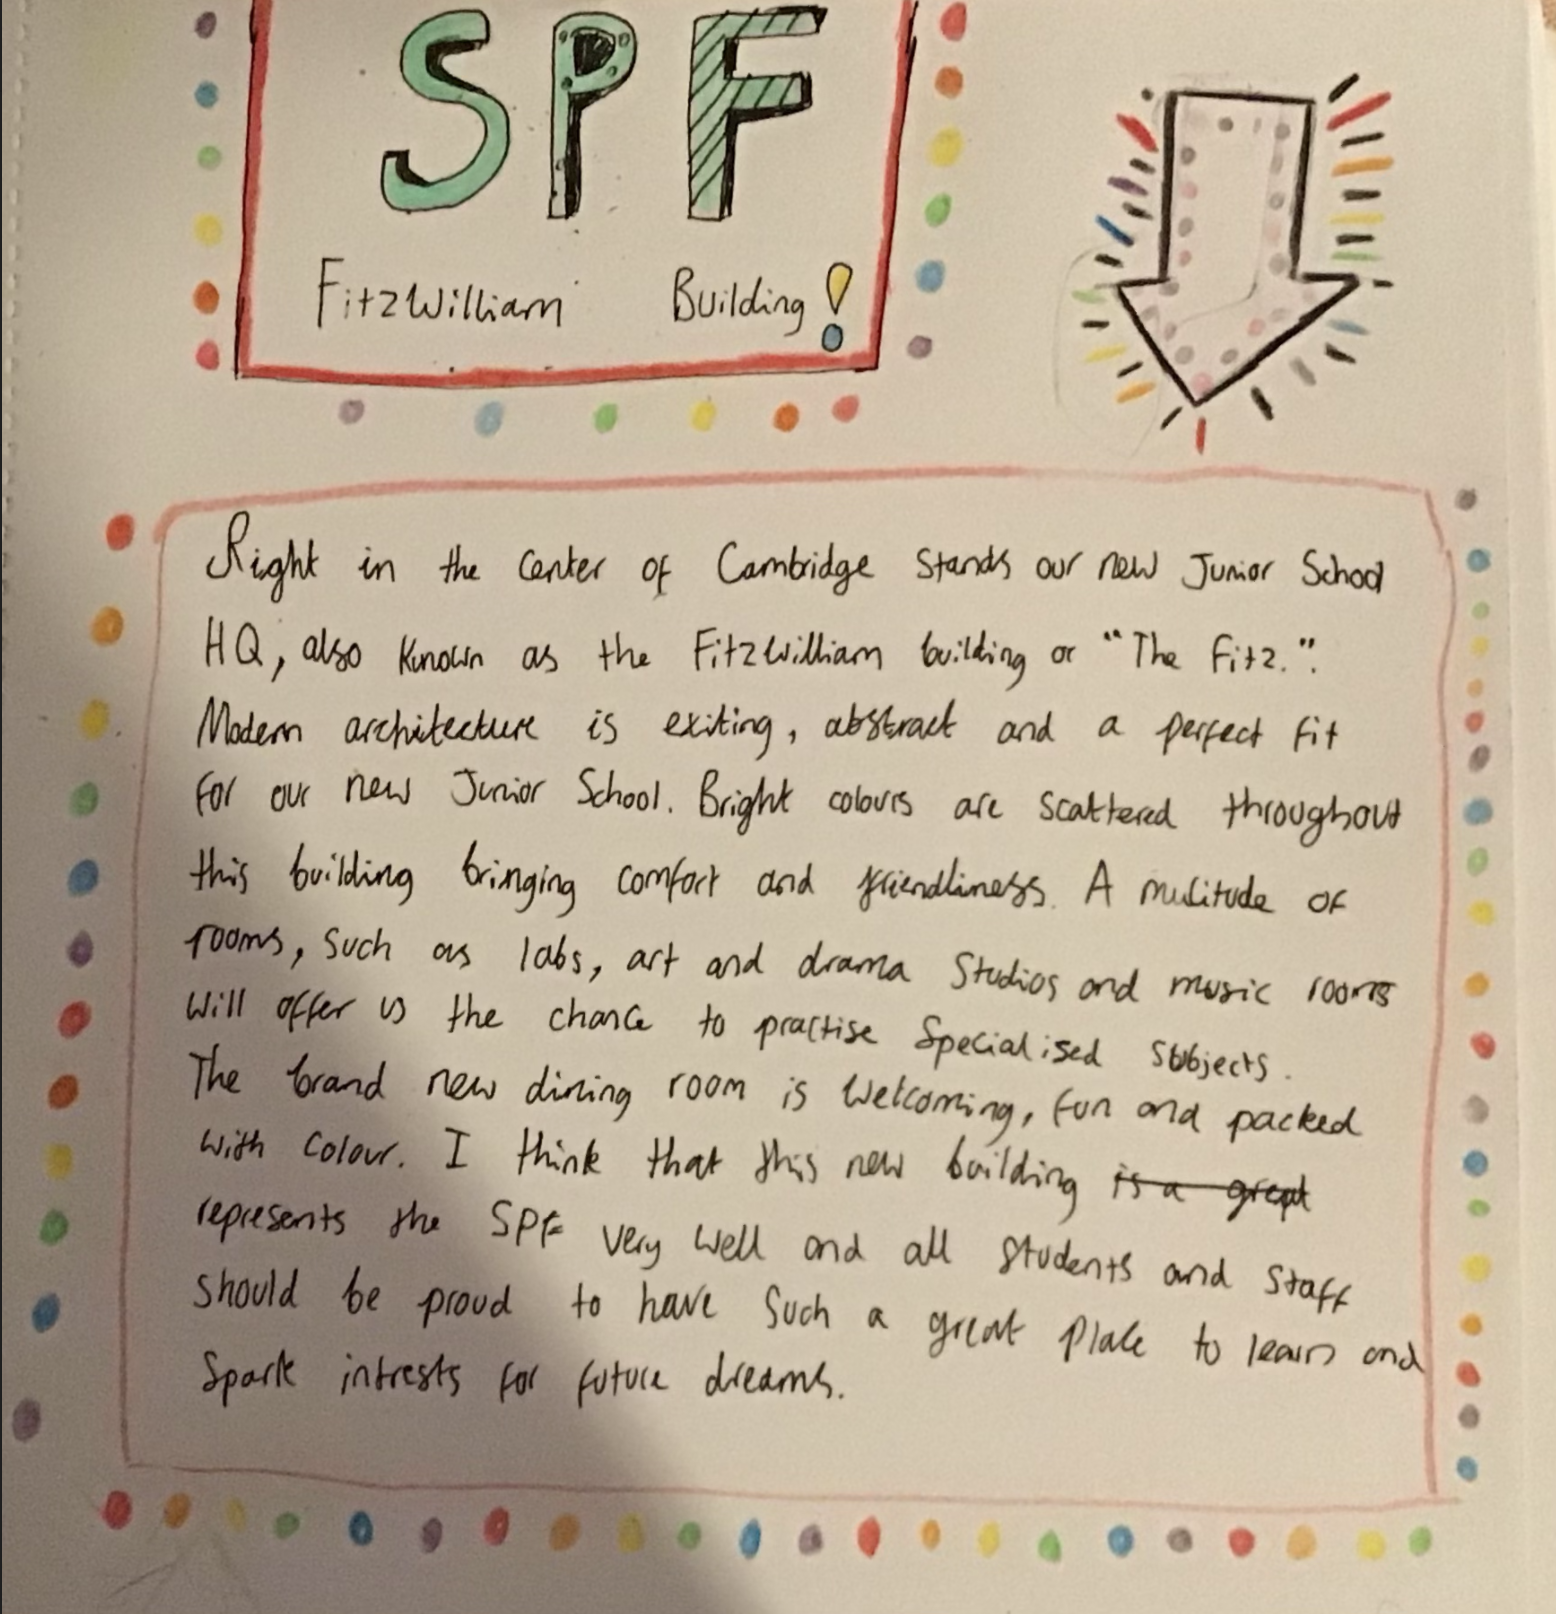 SPF
FitzWilliam Building!
Right in the center of Cambridge stands our new Junior School
HQ, also known as the FitzWilliam building or "The Fitz.".
Modern architecture is exiting, abstract and a perfect fit
for our new Junior School. Bright colours are scattered throughout
this building bringing comfort and friendliness. A mulitude of
rooms, such as labs, art and drama studios and music rooms
will offer us the chance to practise specialised subjects.
The brand new dining room is welcoming, fun and packed
with colour. I think that this new building is a great
represents the SPF very well and all students and staff
should be proud to have such a great place to learn and
spark intrests for future dreams.